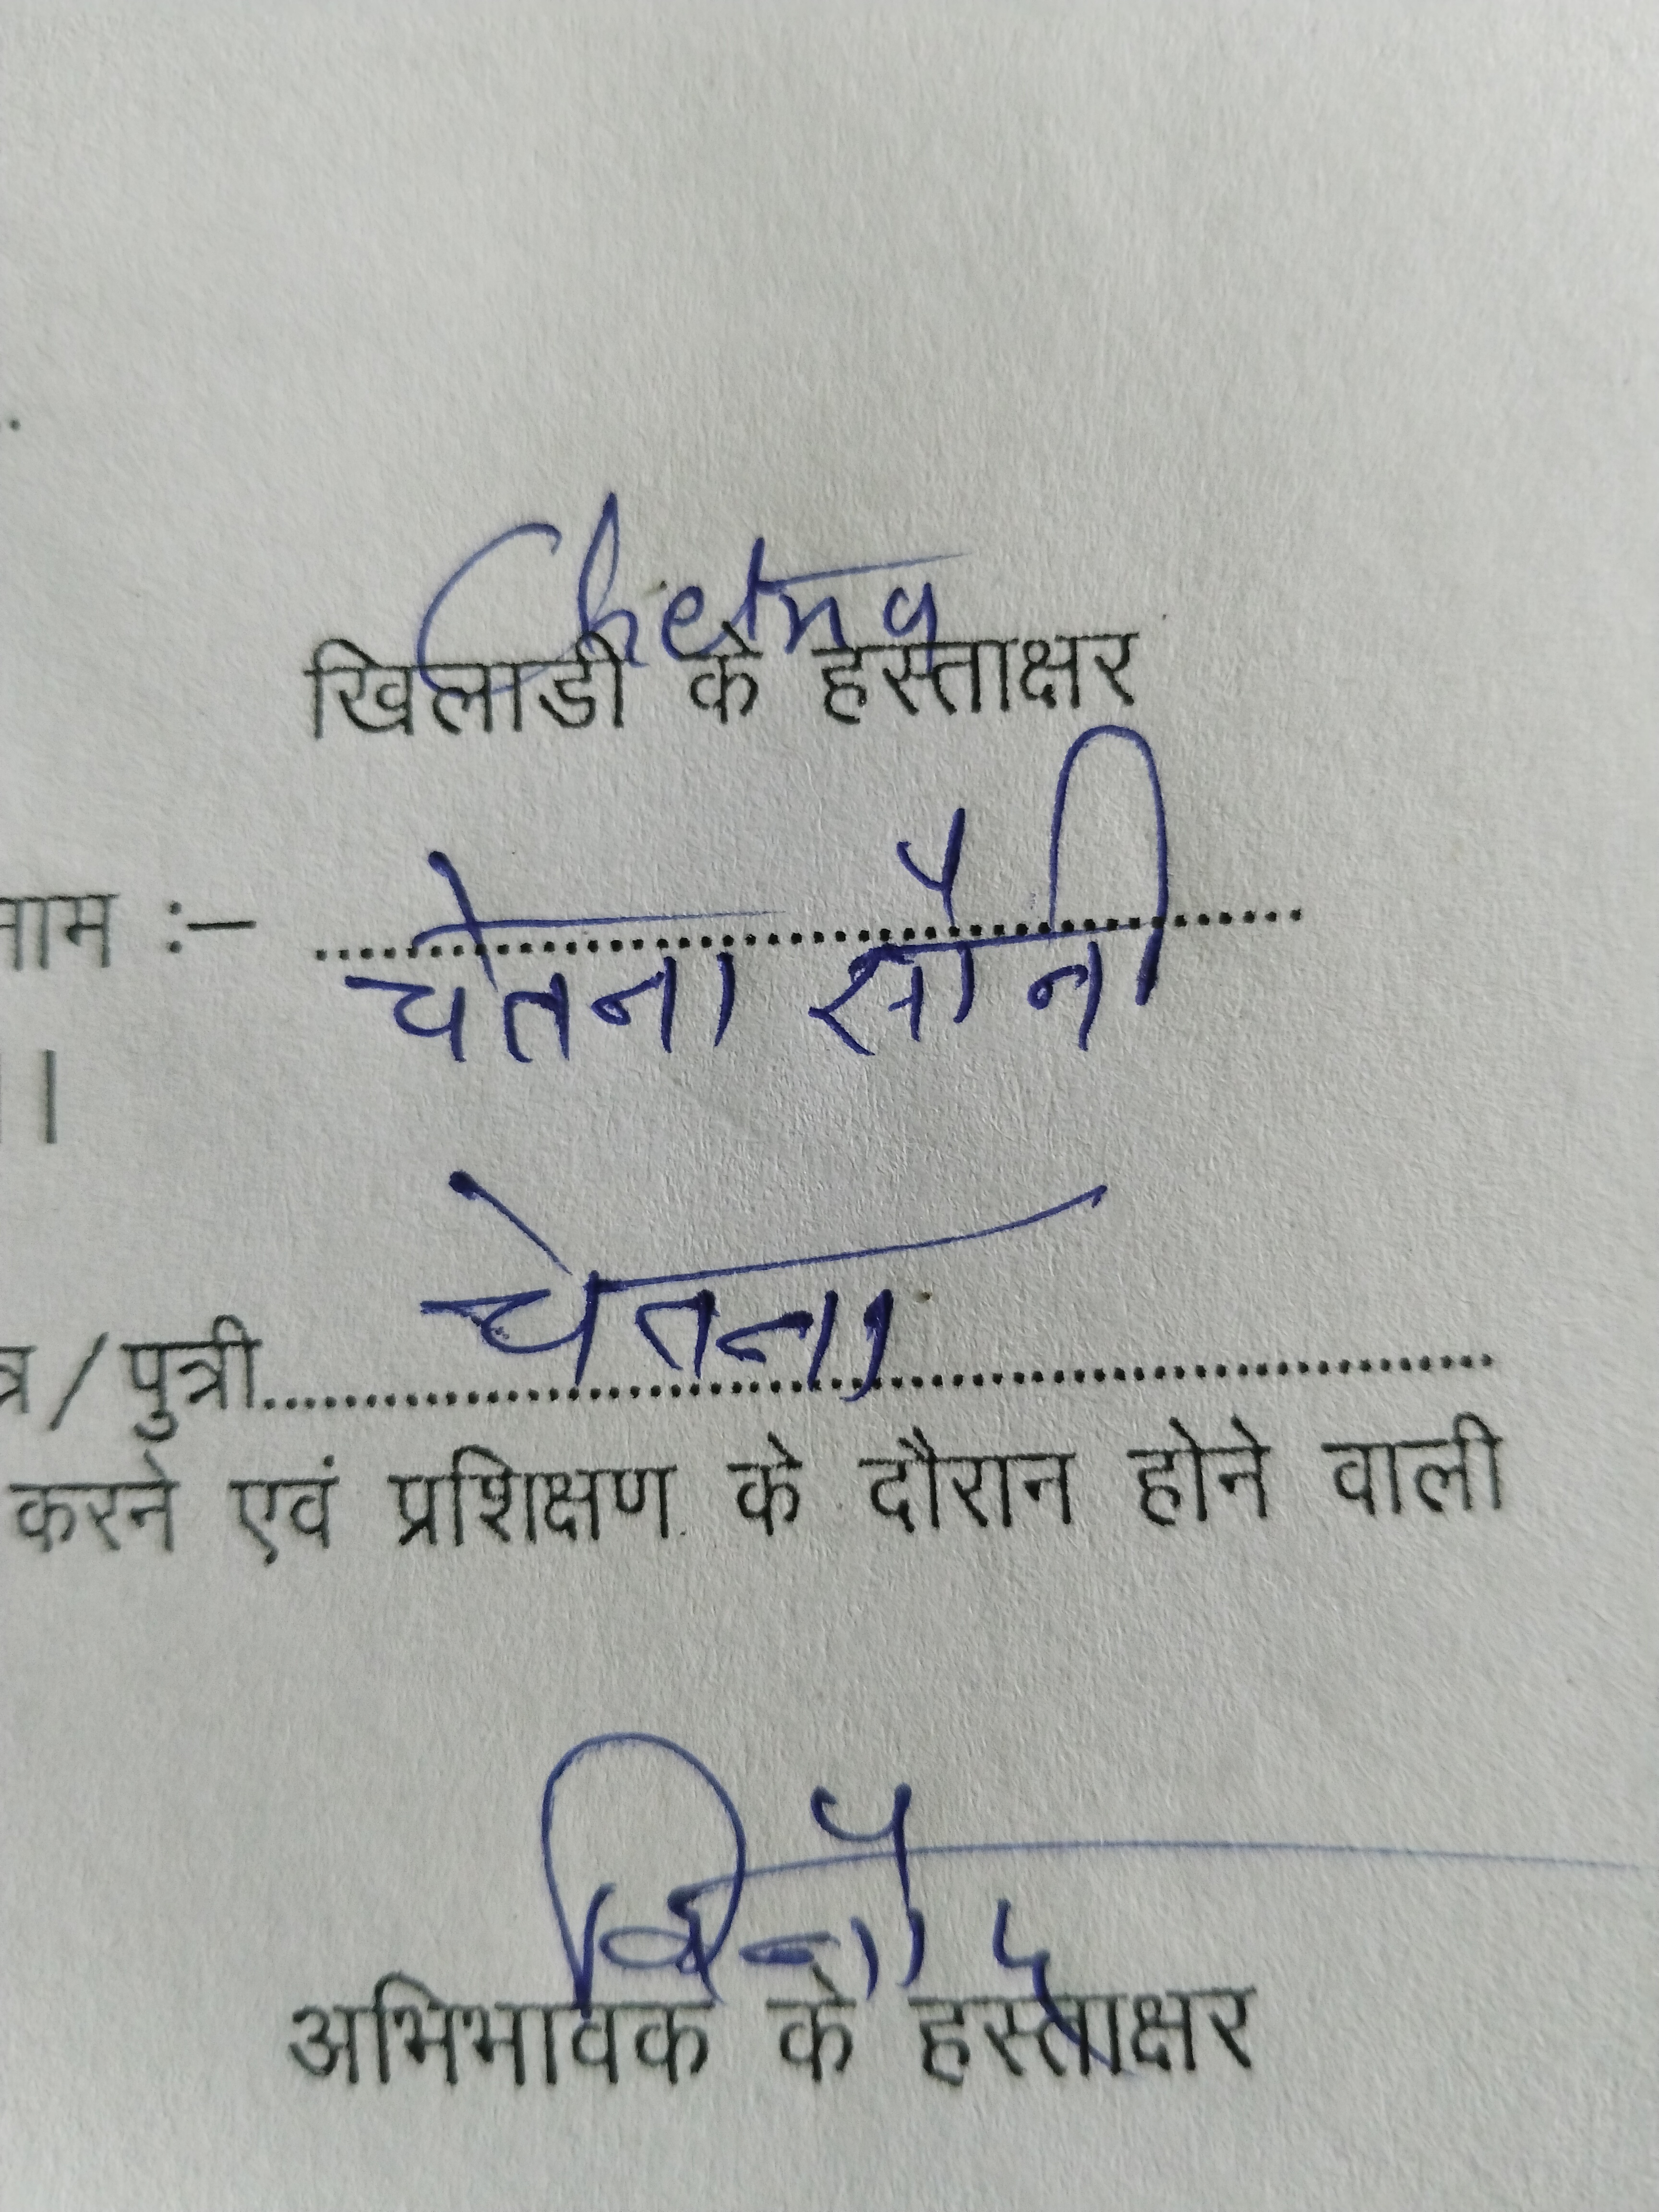 Chetna
खिलाडी के हस्ताक्षर
नाम :– चेतना सोनी
।
चेतना
त्र/पुत्री....................
करने एवं प्रशिक्षण के दौरान होने वाली
विनोद
अभिभावक के हस्ताक्षर